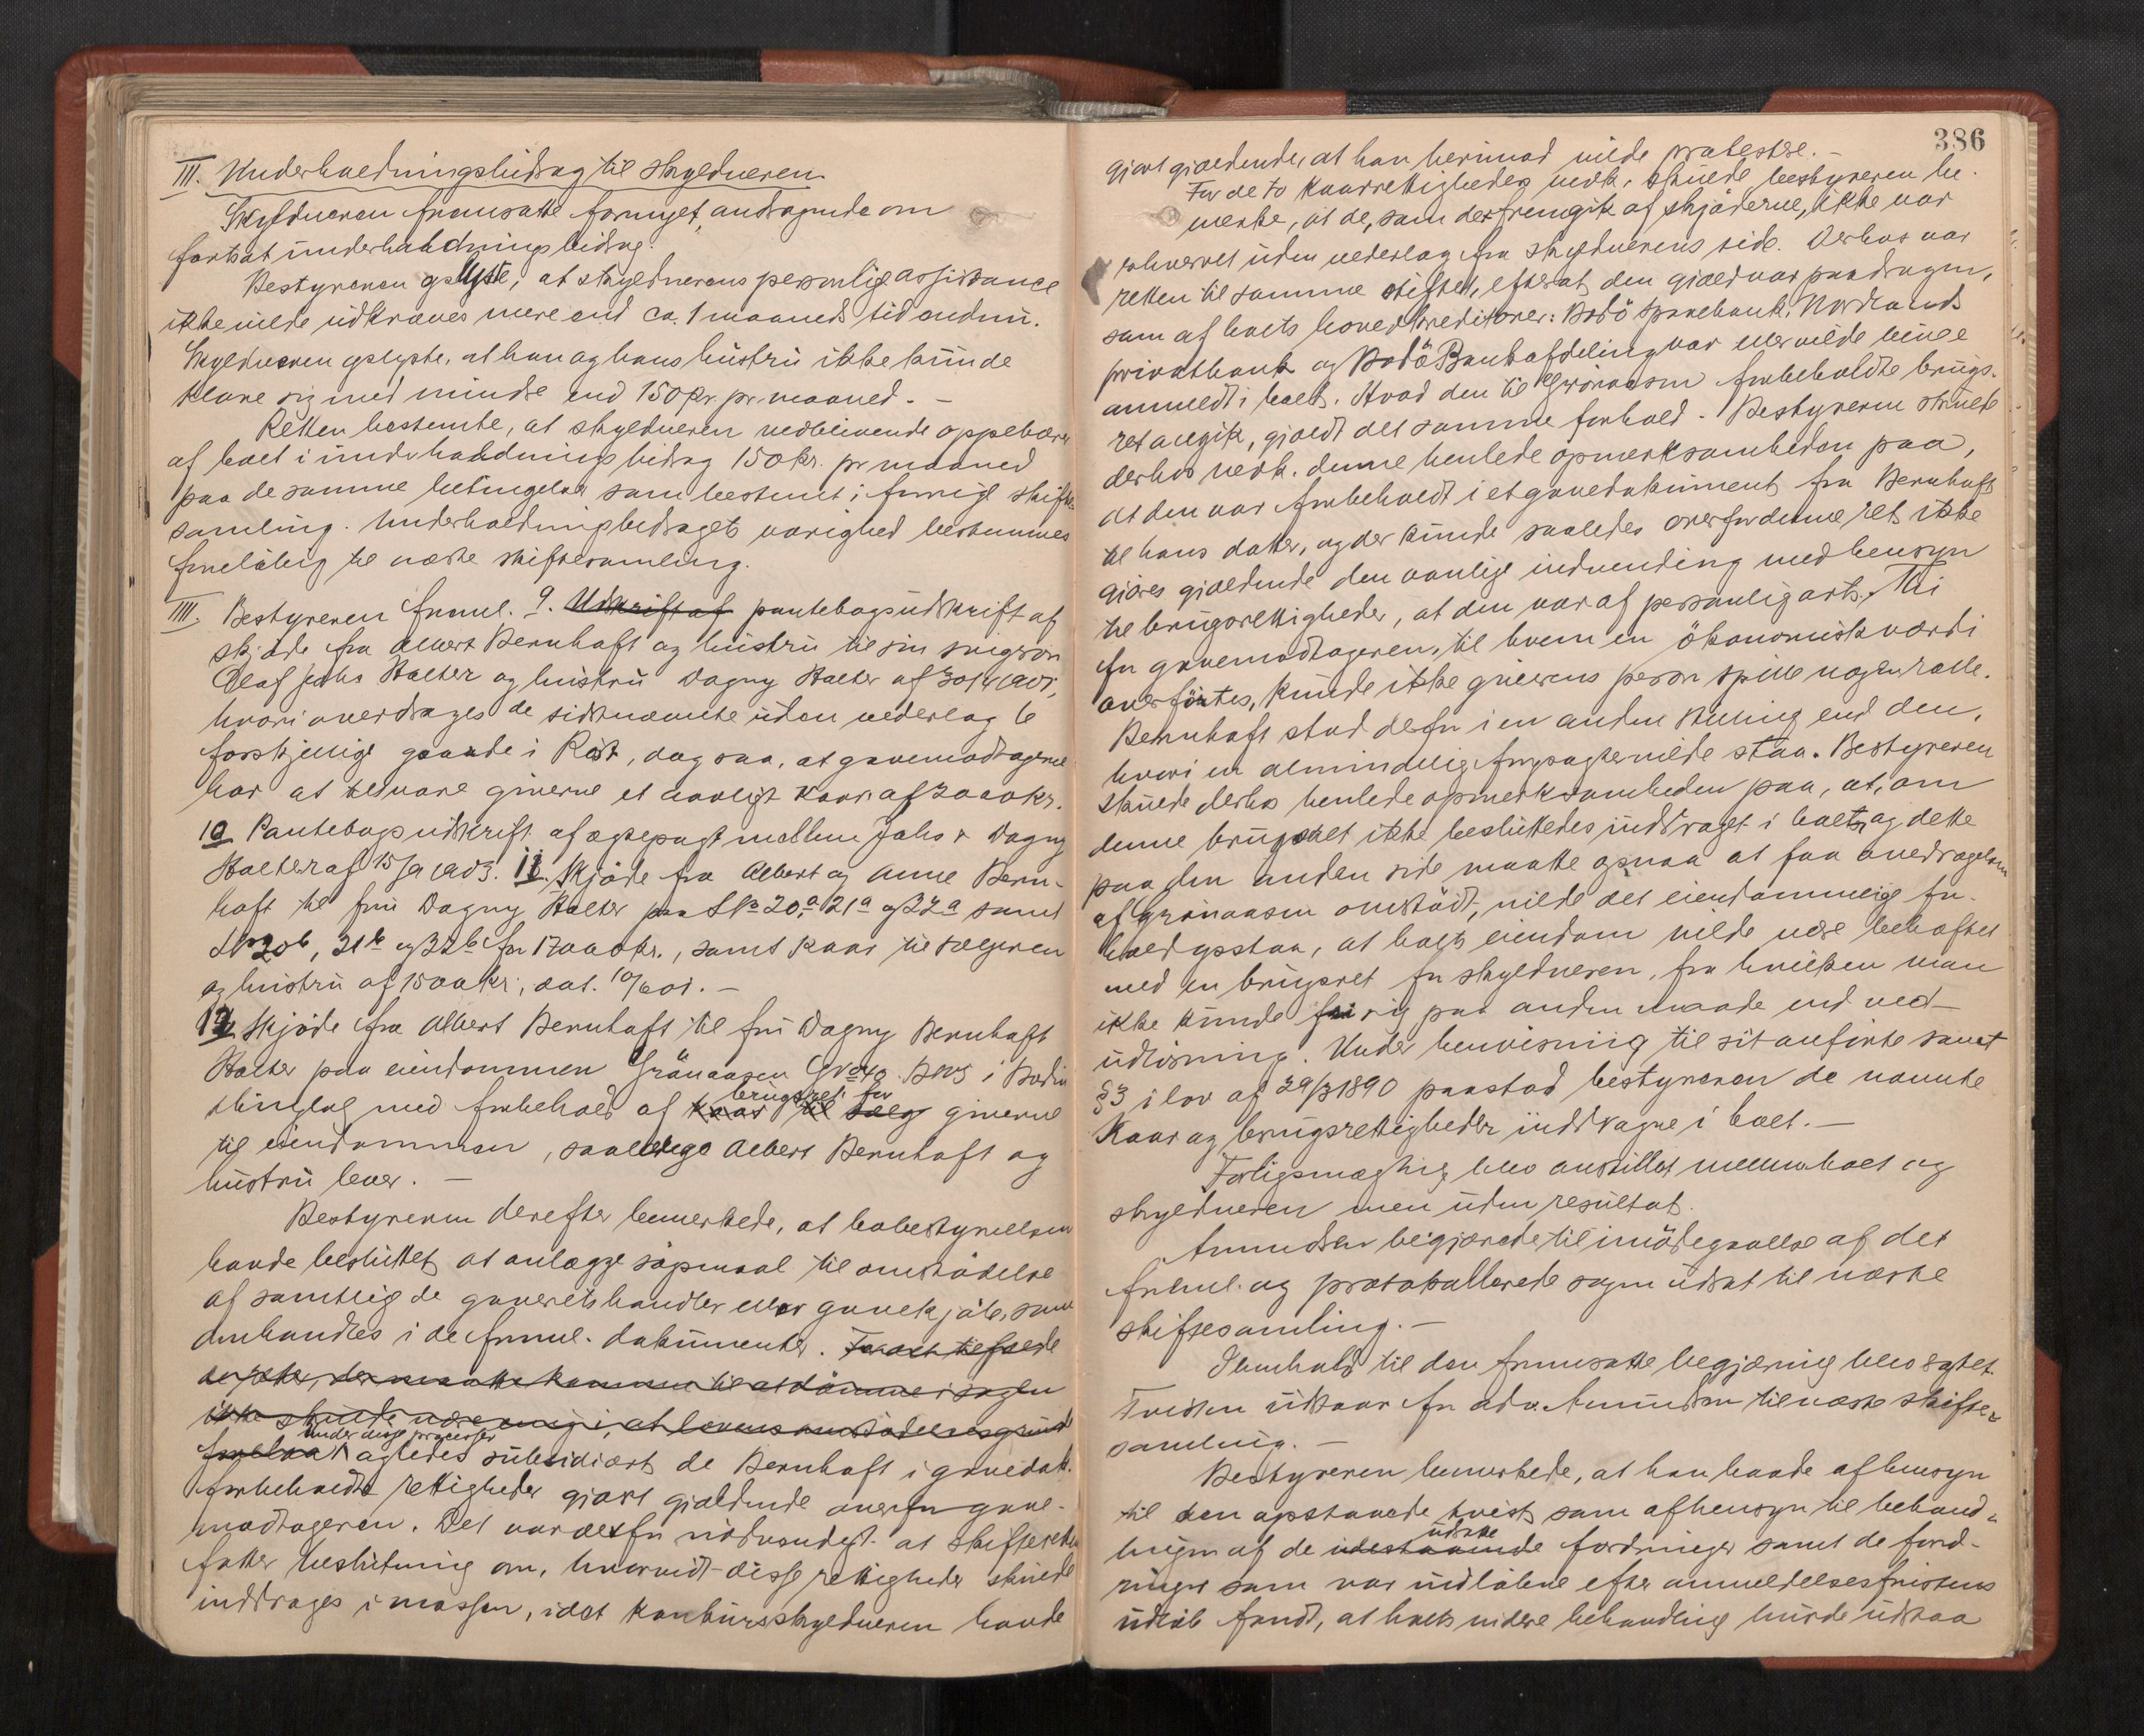 III. Underholdningsbidrag til skyldneren.
Skyldneren fremsatte fornyet andragende om
fortsat underholdningsbidrag.
Bestyreren oplyste, at skyldnerens personlige assistance
ikke vilde udkræves mere end ca. 1 maaneds tid endnu.
Skyldneren oplyste, at han og hans hustru ikke kunde
klare sig med mindre end 150 kr. pr. maaned. –
Retten bestemte, at skyldneren vedblivende oppebærer
af boet i underholdningsbidrag 150 kr. pr maaned
paa de samme betingelser som bestemt i forrige skifte-
samling. Underholdningsbidragets varighed bestemmes
foreløbig til næste skiftesamling.
IIII. Bestyreren freml. 9. Udskrift af pantebogsudskrift af
skjøde fra Albert Bernhoft og hustru til sin svigersøn
Olaf Johs Halter og hustru Dagny Halter af 30/4 1901,
hvori overdrages de sidstnævnte uden vederlag 6
forskjellige gaarde i Røst, dog saa, at gavemodtagerne
har at tilsvare giverne et aarligt kaar af 2000 kr.
10 Pantebogsudskrift af ægtepagt mellem Johs & Dagny
Halter af 15/9 1903. 11. Skjøde fra Albert og Anne Bern-
hoft til fru Dagny Halter paa LNo 20a, 21a og 22a samt
LNo 20b, 21b og 22b for 17000 kr., samt kaar til sælgeren
og hustru af 1500 kr, dat. 10/6 01. –
12. Skjøde fra Albert Bernhoft til fru Dagny Bernhoft
Halter paa eiendommen Grønaasen Gno 40 Bno 3 i Bodin
thinglag med forbehold af kaar brugsret for til sælg giverne
til eiendommen, saalænge Albert Bernhoft og
hustru lever. –
Bestyreren derefter bemerkede, at bobestyrelsen
havde besluttet at anlægge søgsmaal til omstødelse
af samtlige de gaveretshandler eller gavekjøb, som
omhandles i de freml. dokumenter. For det tilfælde
ikke skulde være enig i, at lovens omstødelsesgrund
forelaa under disse processer agtedes subsidiært de Bernhoft i gavedok.
forbeholdte rettigheder gjort gjældende overfor gave-
modtageren. Det var derfor nødvendigt at skifteretten
fatter beslutning om, hvorvidt disse rettigheder skulde
inddrages i massen, idet konkursskyldneren havde
386
gjort gjældende, at han herimod vilde protestere. –
For de to kaarrettigheders vedk. skulde bestyreren be-
merke, at de, som det fremgik af skjøderne, ikke var
erhvervet uden vederlag fra skyldnerens side. Derhos var
retten til samme stiftet, efter at den gjæld var paadragen,
som af boets hovedkreditorer: Bodø Sparebank, Nordlands
privatbank og Bodø Bankafdeling var eller vilde blive
anmeldt i boet. Hvad den til Grønaasen forbeholdte brugs-
ret angik, gjaldt det samme forhold. Bestyreren skulde
derhos vedk. denne henlede opmerksomheden paa,
at den var forbeholdt i et gavedokument fra Bernhoft
til hans datter, og der kunde saaledes overfor denne ret ikke
gjøres gjældende den vanlige indvending med hensyn
til brugsrettigheder, at den var af personlig art. Thi
for gavemodtageren, til hvem en økonomisk værdi
overførtes, kunde ikke giverens person spille nogen rolle.
Bernhoft stod derfor i en anden stilling end den,
hvori en almindelig forpagter vilde staa. Bestyreren
skulde derhos henlede opmerksomheden paa, at, om
denne brugsret ikke besluttedes inddraget i boet, og dette
paa den anden side maatte opnaa at faa overdragelsen
af Grønaasen omstødt, vilde det eiendommelige for-
hold opstaa, at boets eiendom vilde være beheftet
med en brugsret for skyldneren, fra hvilken man
ikke kunde fri sig paa anden maade end ved
udløsning. Under henvisning til sit anførte samt
§ 3 i lov af 29/3 1890 paastod bestyreren de nævnte
kaar og brugsrettigheder inddragne i boet. –
Forligsmægling blev anstillet mellem boet og
skyldneren men uden resultat.
Amundsen begjærede til imødegaaelse af det
freml. og protokollerede sagen udsat til næste
skiftesamling. –
I henhold til den fremsatte begjæring blev sagtet
Tvisten udsat for adv. Amundsen til næste skifte-
samling. –
Bestyreren bemerkede, at han baade af hensyn
til den opstaaede tvist, som af hensyn til behand-
lingen af de udestaaende udsatte fordringer samt de ford-
ringer som var indløbne efter anmeldelsesfristens
udløb fandt, at boets videre behandling burde udstaa